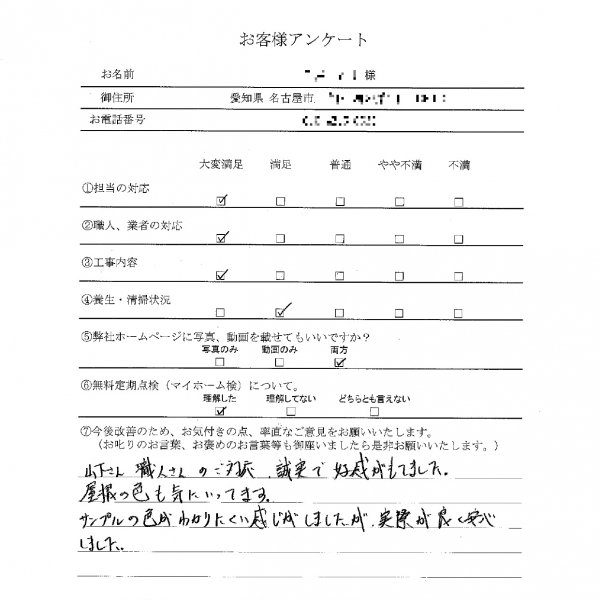 お客様アンケート
お名前 様
御住所 愛知県 名古屋市
お電話番号
大変満足 満足 普通 やや不満 不満
①担当の対応 ☑ □ □ □ □
②職人、業者の対応 ☑ □ □ □ □
③工事内容 ☑ □ □ □ □
④養生・清掃状況 □ ☑ □ □ □
⑤弊社ホームページに写真、動画を載せてもいいですか？
写真のみ 動画のみ 両方
□ □ ☑
⑥無料定期点検（マイホーム検）について。
理解した 理解してない どちらとも言えない
☑ □ □
⑦今後改善のため、お気付きの点、率直なご意見をお願いいたします。
（お叱りのお言葉、お褒めのお言葉等も御座いましたら是非お願いいたします。）
山下さん 職人さん のご対応、誠実で 好感がもてました。
屋根の色も気にいってます。
サンプルの色がわかりにくい感じがしましたが、実際が良く安心
しました。